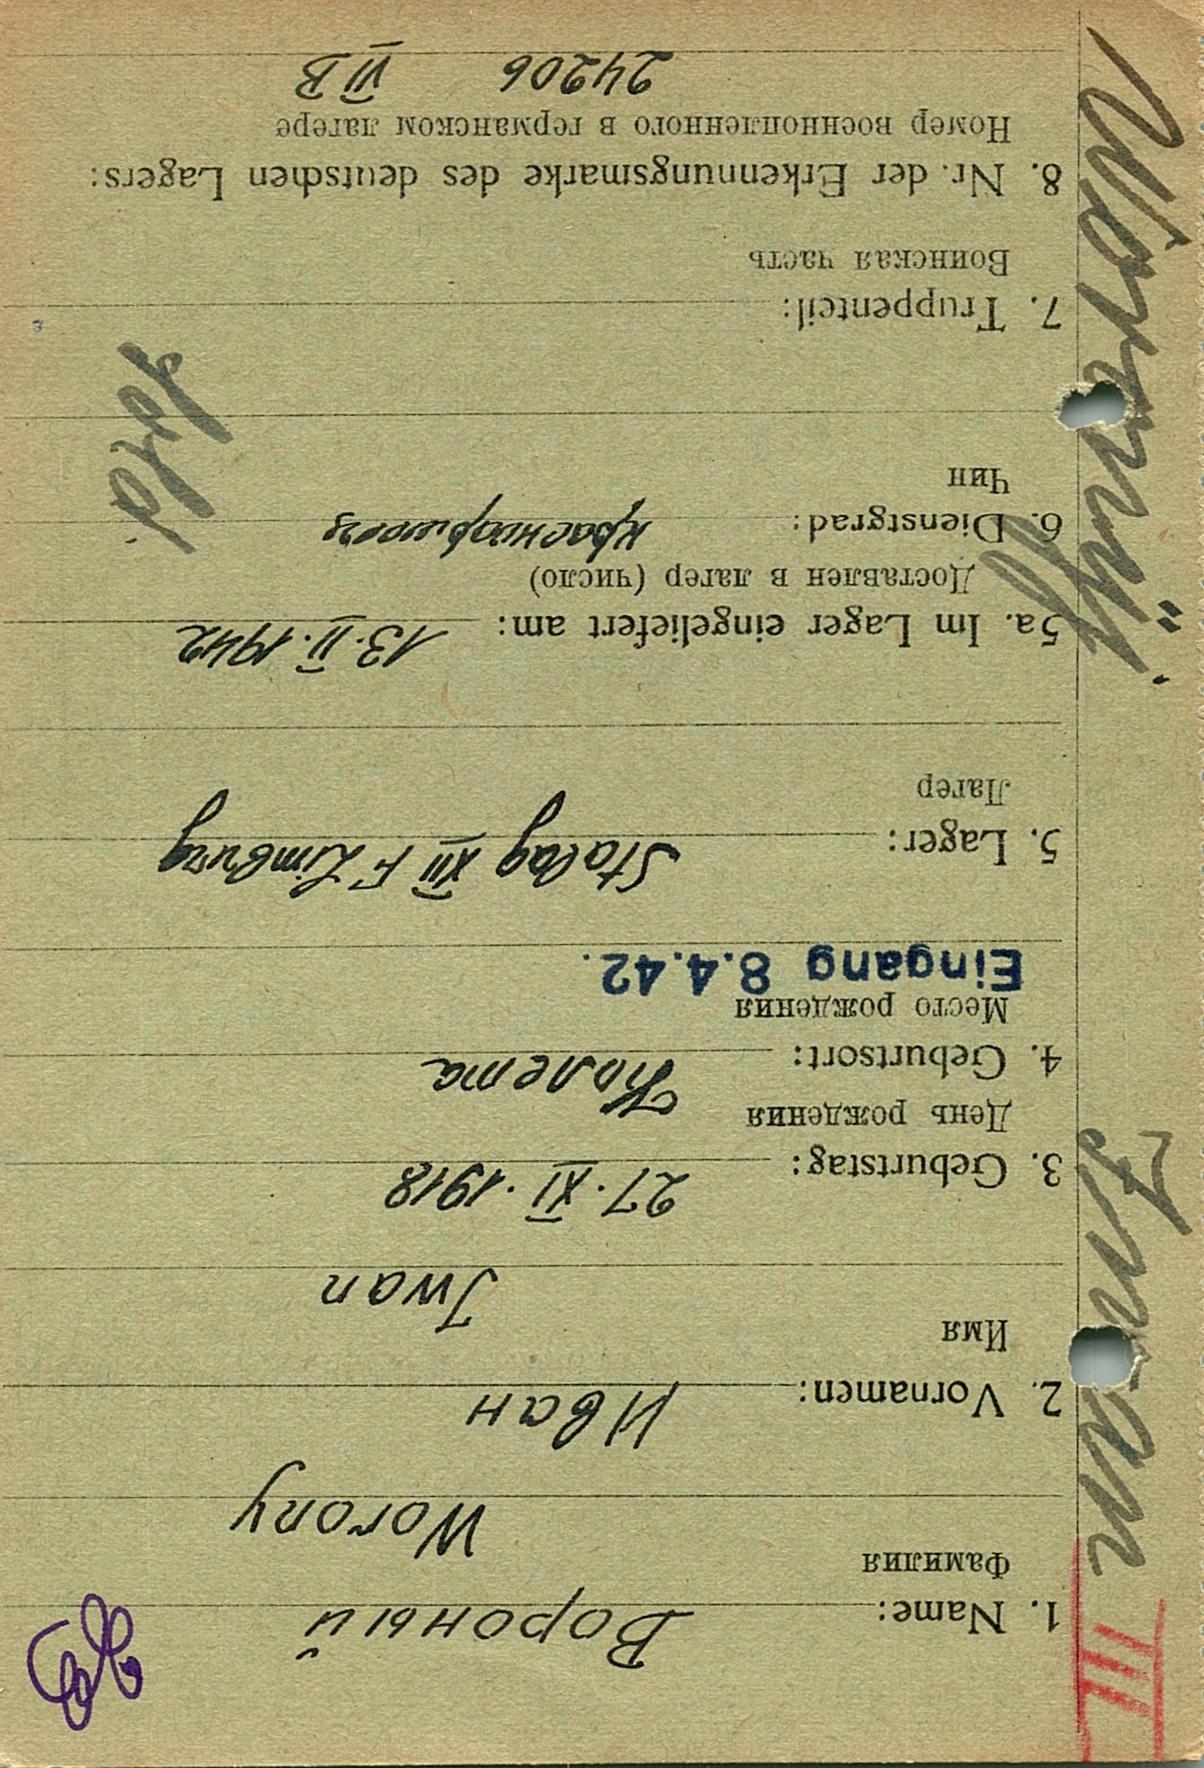 III
Iwan Woronÿj
1. Name: Вороный
Фамилия
Worony
2. Vornamen: Иван
Имя
Iwan
3. Geburtstag: 27.XI.1918
День рождения
4. Geburtsort:
Место рождения
Eingang 8.4.42.
5. Lager: Stalag XII F Limburg
Лагер
5a. Im Lager eingeliefert am: 13.II.1942
Доставлен в лагер (число)
6. Dienstgrad: красноармеец
Чин
Sold
7. Truppenteil:
Воинская часть
8. Nr. der Erkennungsmarke des deutschen Lagers:
Номер военнопленного в германском лагере
24206 VI B